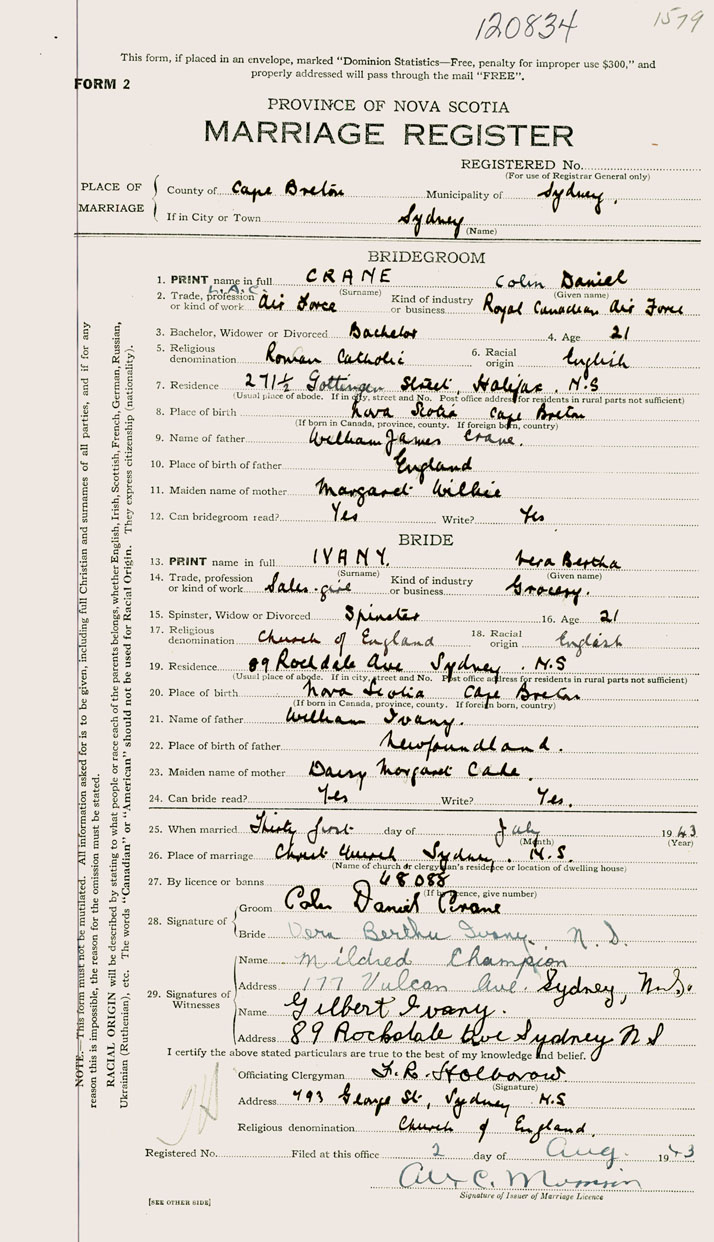 120834 1579
This form, if placed in an envelope, marked "Dominion Statistics—Free, penalty for improper use $300," and
properly addressed will pass through the mail "FREE".
FORM 2
PROVINCE OF NOVA SCOTIA
MARRIAGE REGISTER
REGISTERED No.
(For use of Registrar General only)
PLACE OF MARRIAGE
County of Cape Breton Municipality of Sydney.
If in City or Town Sydney
(Name)
BRIDEGROOM
1. PRINT name in full CRANE Colin Daniel
(Surname) (Given name)
L.A.C.
2. Trade, profession or kind of work Air Force Kind of industry or business Royal Canadian Air Force
3. Bachelor, Widower or Divorced Bachelor 4. Age 21
5. Religious denomination Roman Catholic 6. Racial origin English
7. Residence 271½ Gottingen Street, Halifax N.S
(Usual place of abode. If in city, street and No. Post office address for residents in rural parts not sufficient)
8. Place of birth Nova Scotia Cape Breton
(If born in Canada, province, county. If foreign born, country)
9. Name of father William James Crane.
10. Place of birth of father England
11. Maiden name of mother Margaret Wilkie
12. Can bridegroom read? Yes Write? Yes
BRIDE
13. PRINT name in full IVANY. Vera Bertha
(Surname) (Given name)
14. Trade, profession or kind of work Sales-girl Kind of industry or business Grocery.
15. Spinster, Widow or Divorced Spinster 16. Age 21
17. Religious denomination Church of England 18. Racial origin English
19. Residence 89 Rockdale Ave Sydney. N.S
(Usual place of abode. If in city, street and No. Post office address for residents in rural parts not sufficient)
20. Place of birth Nova Scotia Cape Breton
(If born in Canada, province, county. If foreign born, country)
21. Name of father William Ivany.
22. Place of birth of father Newfoundland.
23. Maiden name of mother Daisy Margaret Cake.
24. Can bride read? Yes Write? Yes.
25. When married Thirty first day of July 1943
(Month) (Year)
26. Place of marriage Christ Church Sydney. N.S.
(Name of church or clergyman's residence or location of dwelling house)
27. By licence or banns 48088
(If by licence, give number)
28. Signature of
Groom Colin Daniel Crane
Bride Vera Bertha Ivany. N.D.
29. Signatures of Witnesses
Name Mildred Champion
Address 177 Vulcan Ave. Sydney, N.S.
Name Gilbert Ivany.
Address 89 Rockdale Ave Sydney N S
I certify the above stated particulars are true to the best of my knowledge and belief.
Officiating Clergyman F. R. Holborow
(Signature)
Address 793 George St, Sydney N.S
Religious denomination Church of England.
Registered No. Filed at this office 2 day of Aug. 1943
Signature of Issuer of Marriage Licence
[SEE OTHER SIDE]
NOTE.—This form must not be mutilated. All information asked for is to be given, including full Christian and surnames of all parties, and if for any
reason this is impossible, the reason for the omission must be stated.
RACIAL ORIGIN will be described by stating to what people or race each of the parents belongs, whether English, Irish, Scottish, French, German, Russian,
Ukrainian (Ruthenian), etc. The words "Canadian" or "American" should not be used for Racial Origin. They express citizenship (nationality).